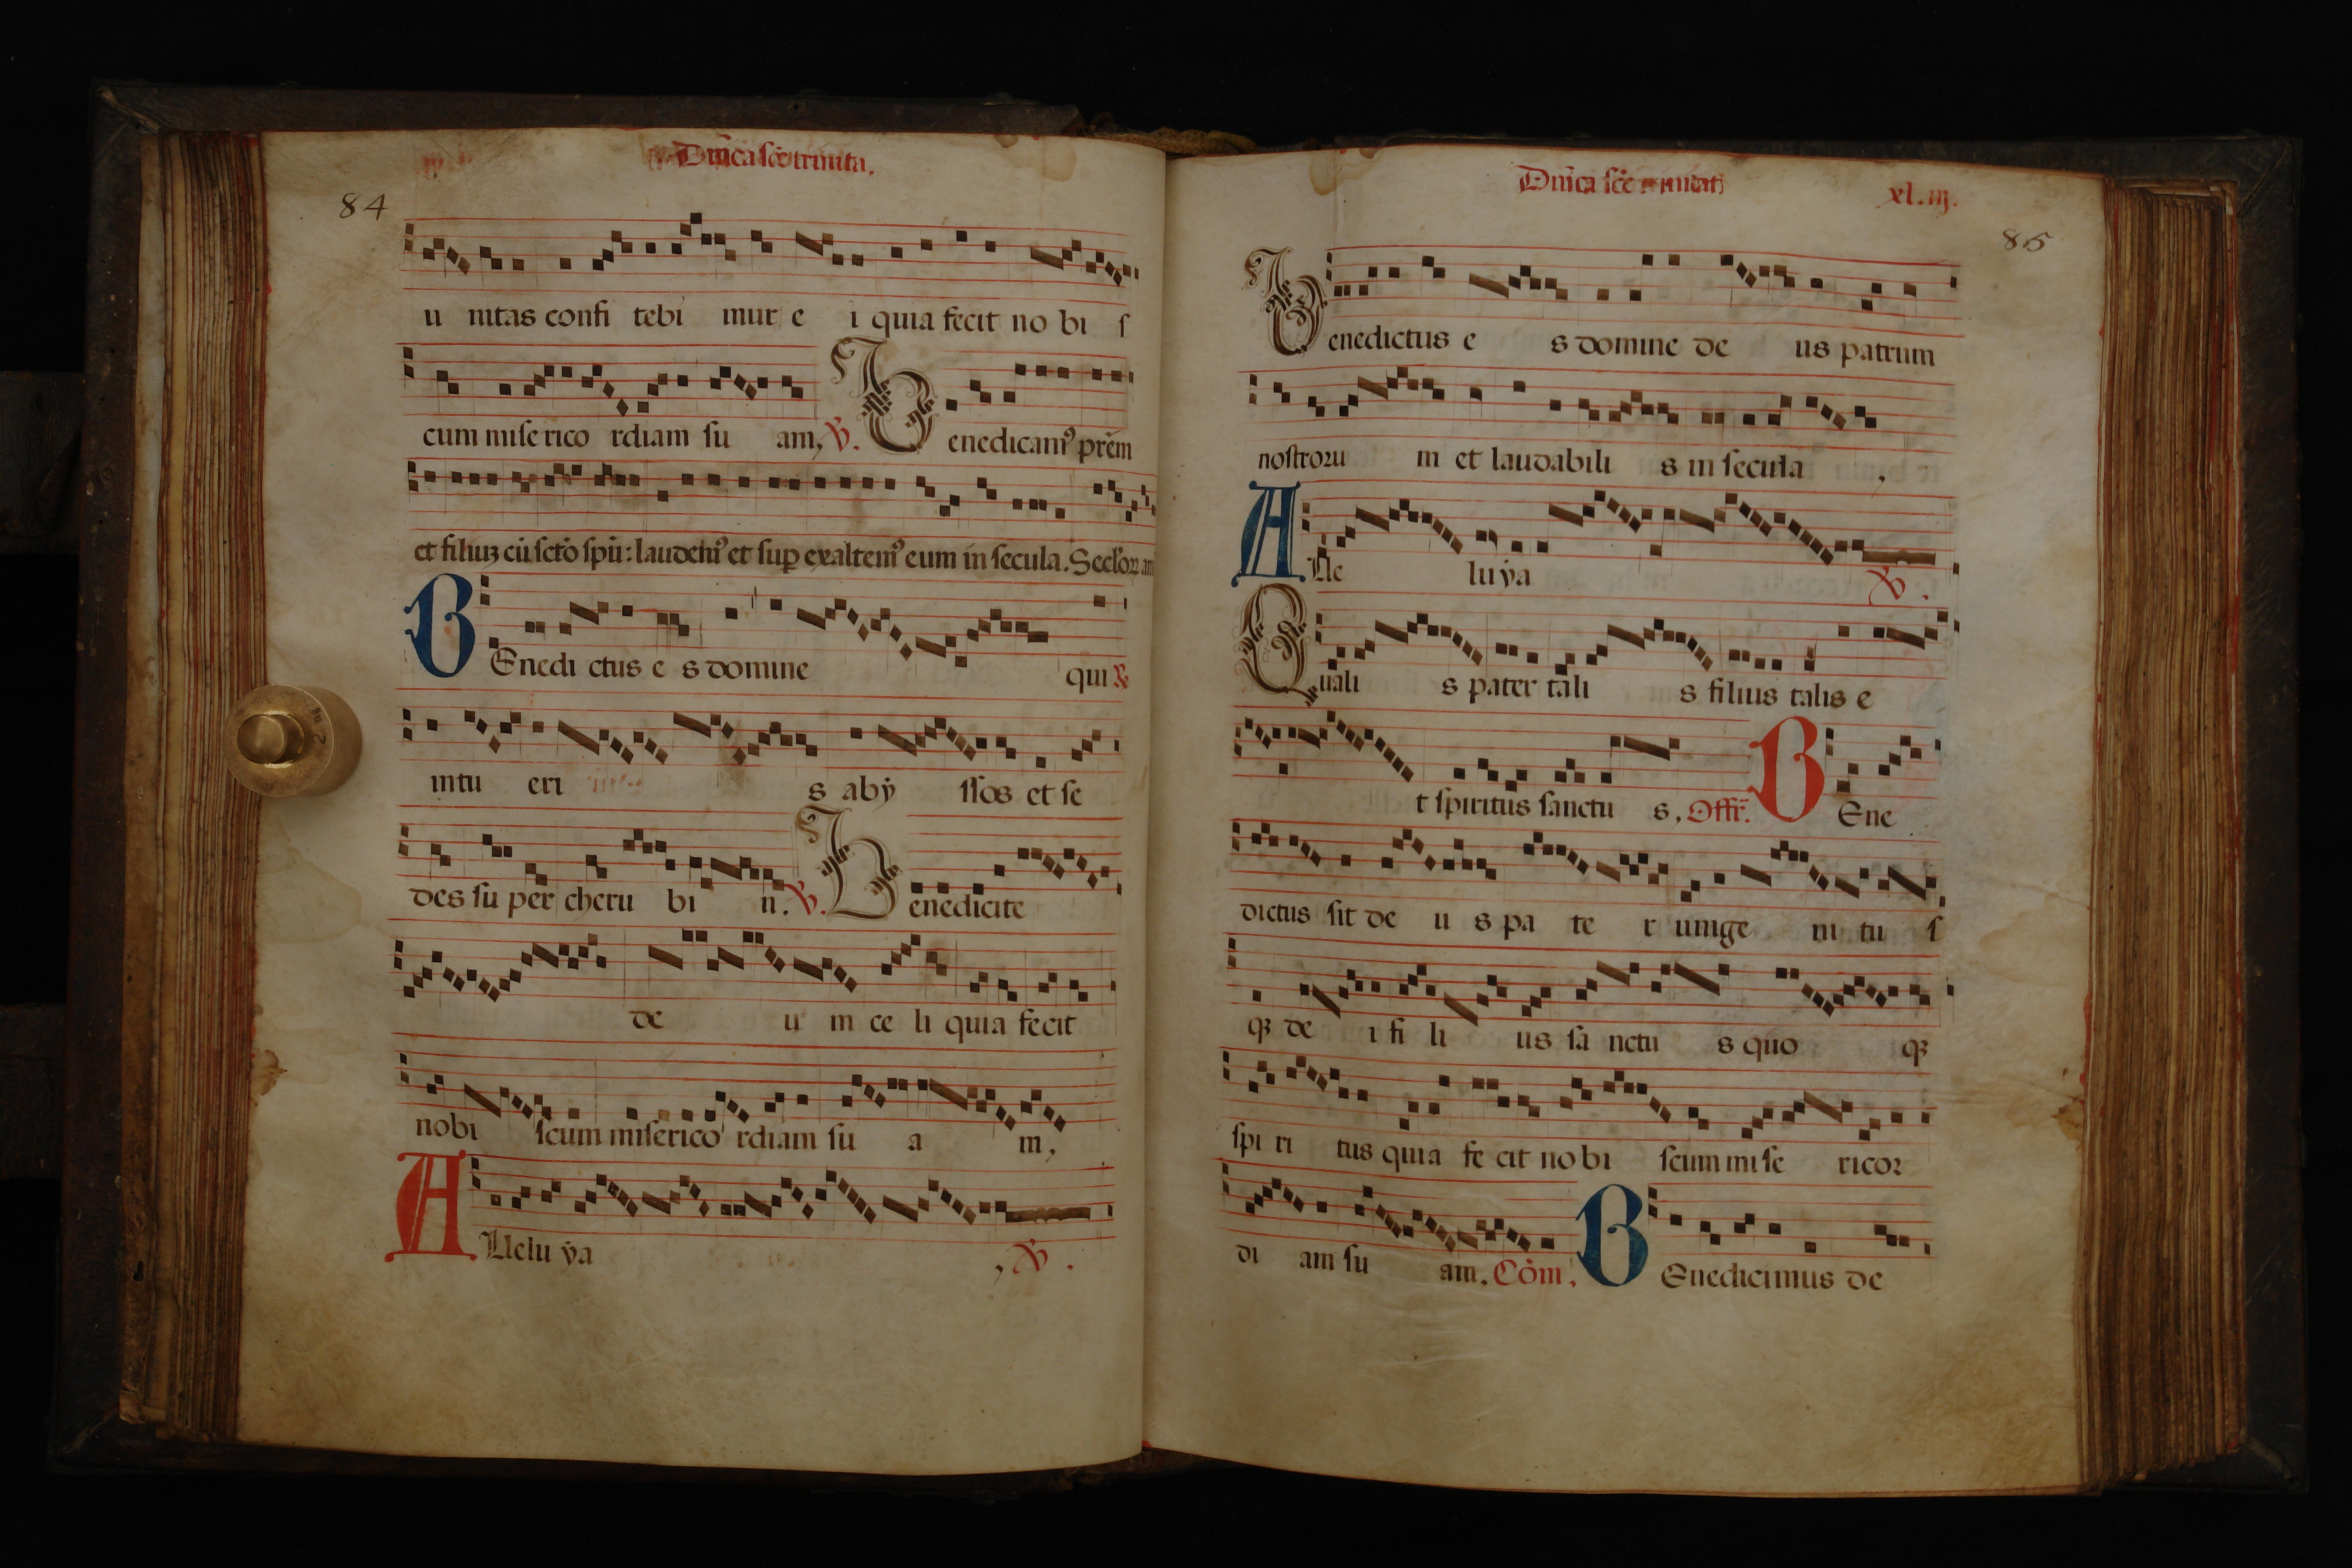 Dñica scẽ trinita.
84
u nitas confi tebi mur e i quia fecit no bi ſ
cum miſe rico rdiam ſu am, ℣. Benedicamꝰ prẽm
et filiuꝫ cũ ſctõ ſpũ: laudemꝰ et ſuꝑ exaltemꝰ eum in ſecula. Seclõꝝ am
BEnedi ctus e s domine qui &
intu eri s abẏ ſſos et ſe
des ſu per cheru bi n. ℣. Benedicite
de u m ce li quia fecit
nobi ſcum miſerico rdiam ſu a m,
ALlelu ẏa , ℣.
Dñica ſcẽ trinitat
xl.iij.
85
Benedictus e s domine de us patrum
noſtroꝛu m et laudabili s in ſecula ,
ALle lu ẏa ℣.
Quali s pater tali s filius talis e
t ſpiritus ſanctu s, Offr̃. BEne
dictus ſit de u s pa te r unige ni tu ſ
qꝫ de i fi li us ſa nctu s quo qꝫ
ſpi ri tus quia fe cit no bi ſcum mi ſe ricoꝛ
di am ſu am. Cõm. BEnedicimus de